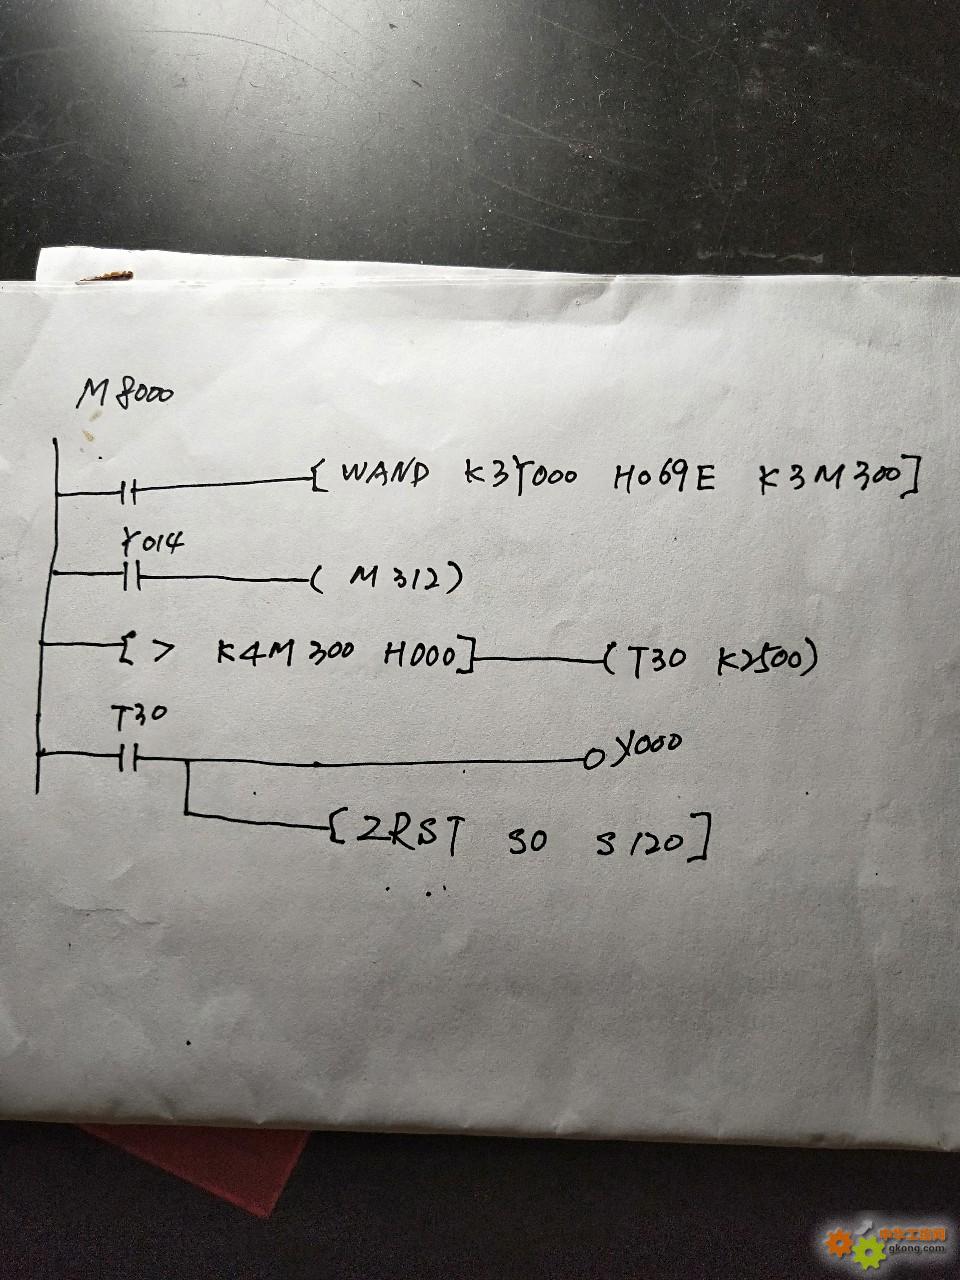 M8000
[ WAND K3Y000 H069E K3M300]
Y014
( M312)
[ > K4M300 H000] (T30 K2500)
T30
Y000
[ZRST S0 S120]
中华工控网
gkong.com